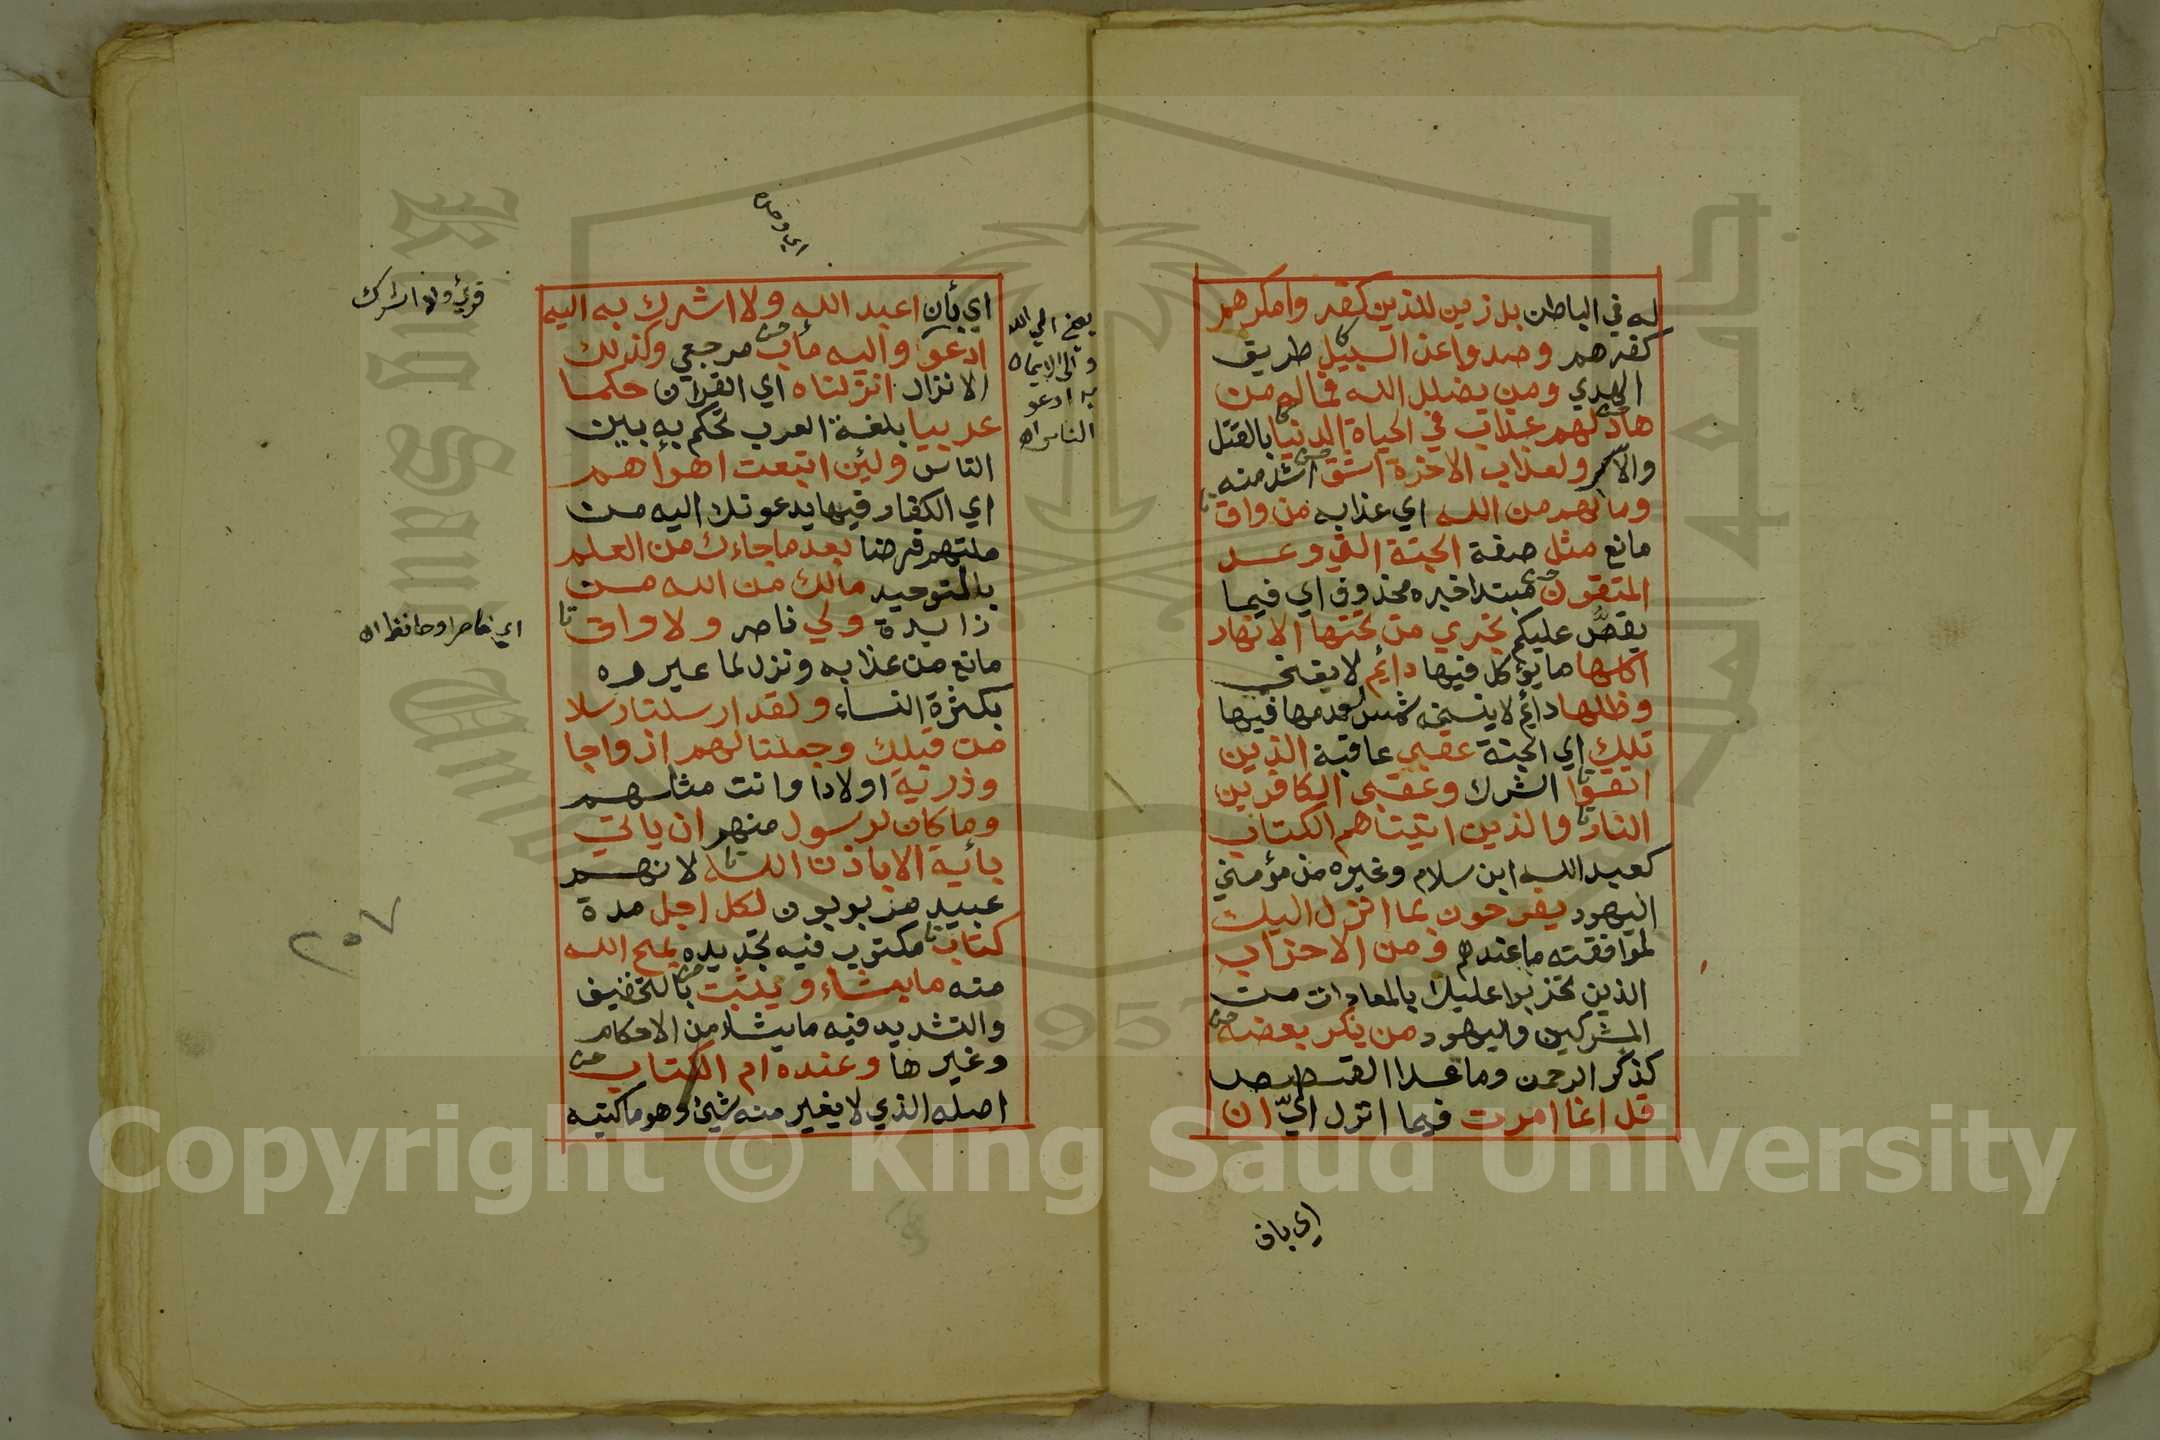 له في الباطن بل زين للذين كفروا مكرهم
كفرهم وصدوا عن السبيل طريق
الهدي ومن يضلل الله فماله من
هاد لهم عذاب في الحياة الدنيا بالقتل
والاسر ولعذاب الاخرة اشق اشد منه
وما لهم من الله اي عذابه من واق
مانع مثل صفة الجنة التي وعد
المتقون مبتدا خبره محذوف اي فيما
يقصّ عليكم تجري من تحتها الانهار
اكلها ما يؤكل فيها دائم لا يفنى
وظلها دائم لا ينسخه شمس لعدمها فيها
تلك اي الجنة عقبي عاقبة الذين
اتقوا الشرك وعقبى الكافرين
النار والذين اتيناهم الكتاب
كعبد الله ابن سلام وغيره من مؤمني
اليهود يفرحون بما انزل اليك
لموافقته ما عندهم ومن الاحزاب
الذين تحزبوا عليك بالمعادات من
المشركين واليهود من ينكر بعضه
كذكر الرحمن وما عدا القصص
قل انما امرت فيما انزل اليّ ان
اي بان
اي وحده
اي بأن اعبد الله ولا اشرك به اليه
ادعو واليه مأب مرجعي وكذلك
الانزال انزلناه اي القرآن حكما
عربيا بلغة العرب تحكم به بين
الناس ولئن اتبعت اهواهم
اي الكفار فيما يدعونك اليه من
ملتهم فرضا بعد ما جاءك من العلم
بالتوحيد مالك من الله من
زايدة ولي ناصر ولا واق
مانع من عذابه ونزل لما عيروه
بكثرة النساء ولقد ارسلنا رسلا
من قبلك وجعلنا لهم ازواجا
وذرية اولادا وانت مثلهم
وما كان لرسول منهم ان ياتي
بأية الا باذن الله لانهم
عبيد مربوبون لكل اجل مدة
كتاب مكتوب فيه تحديده يمح الله
منه ما يشاء ويثبت بالتخفيف
والتشديد فيه ما يشاء من الاحكام
وغيرها وعنده ام الكتاب
اصله الذي لا يغير منه شيئ وهو ما كتبه
يعني الي الله
والى الايمان
به ادعو
الناس اه
قرئ ولا اشرك
اي ناصر او حافظ اه
٢٥٧
Copyright © King Saud University
King Saud University
جامعة الملك سعود
1957